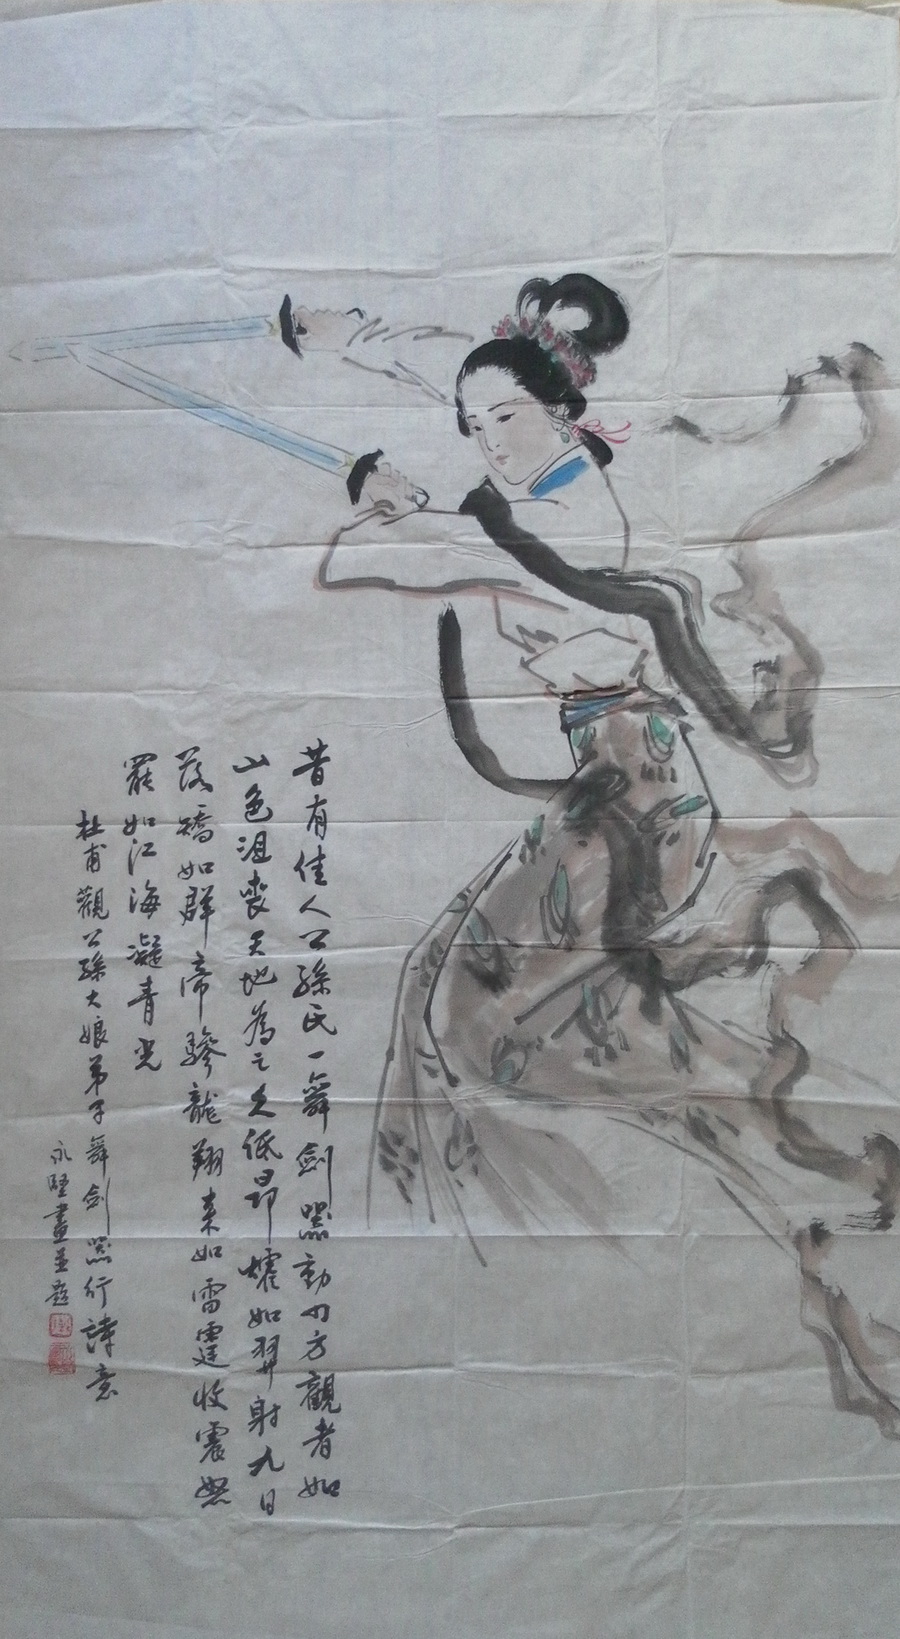 昔有佳人公孫氏一舞劍器動四方觀者如
山色沮喪天地為之久低昂㸌如羿射九日
落矯如群帝驂龍翔來如雷霆收震怒
罷如江海凝青光
杜甫觀公孫大娘弟子舞劍器行詩意
永堅畫並題